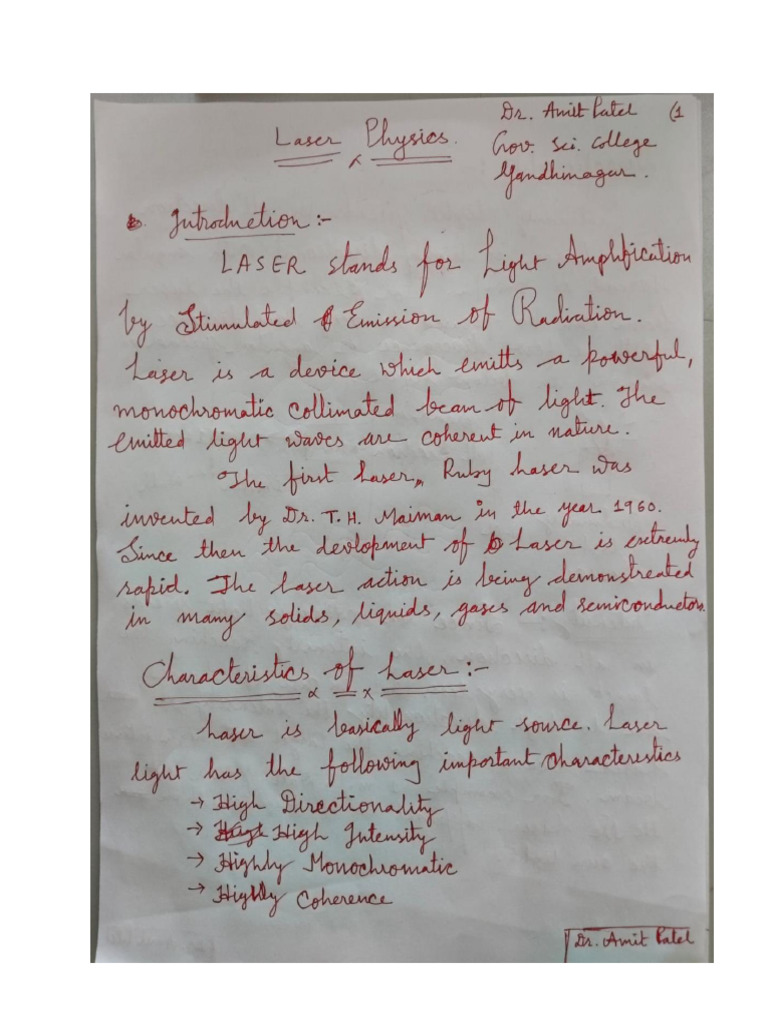 Laser Physics.
Dr. Amit Patel (1
Gov. Sci. College
Gandhinagar.
Introduction :-
LASER stands for Light Amplification
by Stimulated Emission of Radiation.
Laser is a device which emitts a powerful,
monochromatic collimated beam of light. The
emitted light waves are coherent in nature.
The first Laser, Ruby Laser was
invented by Dr. T. H. Maiman in the year 1960.
Since then the devlopment of Laser is extremly
rapid. The Laser action is being demonstreated
in many solids, liquids, gases and semiconductors.
Characteristics of Laser :-
Laser is basically light source. Laser
light has the following important characteristics
→ High Directionality
→ High Intensity
→ Highly Monochromatic
→ Highly Coherence
Dr. Amit Patel